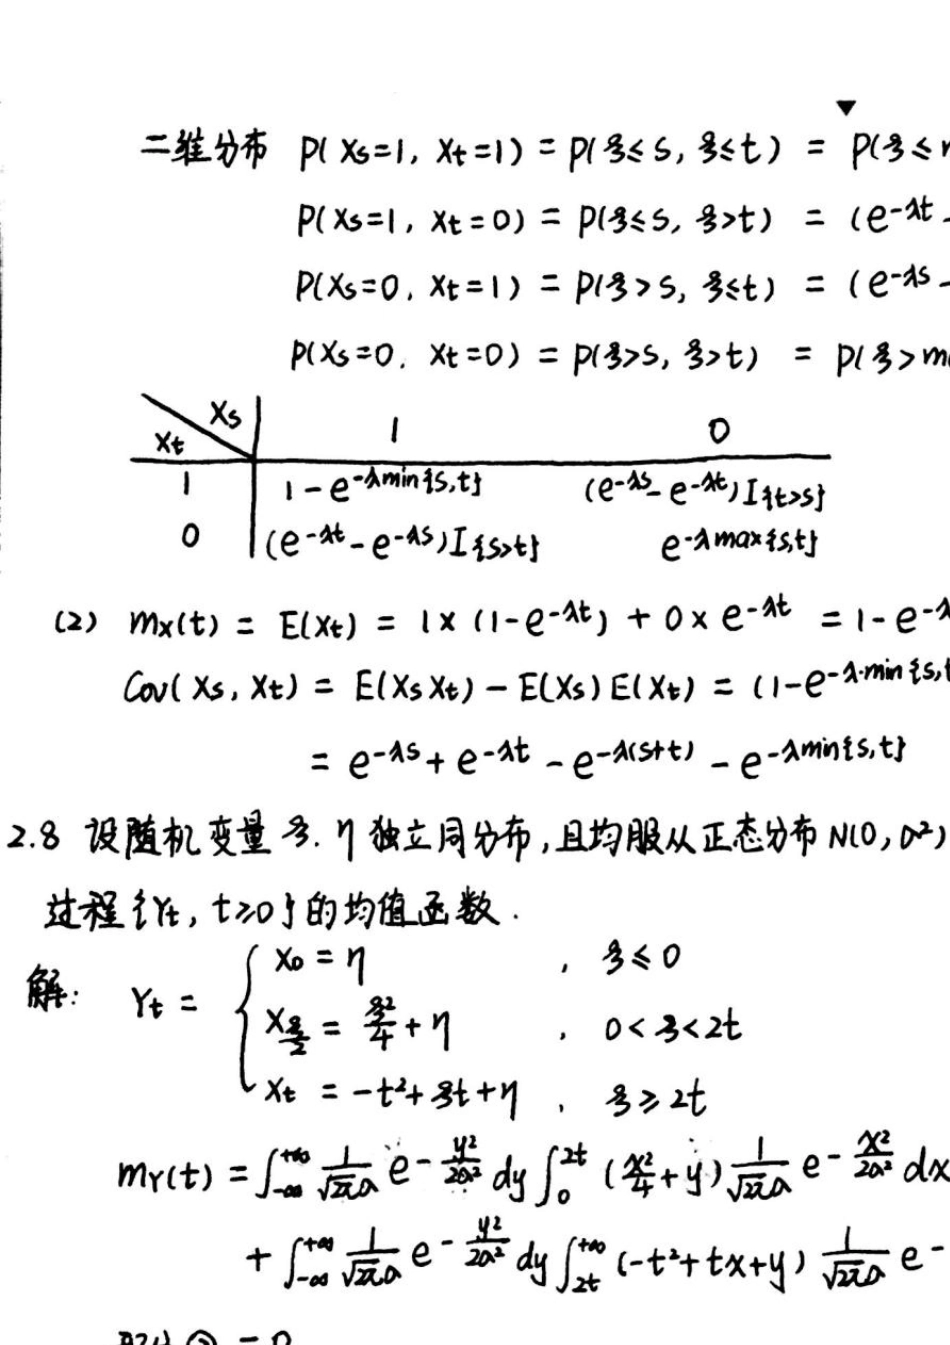 二维分布 P(Xs=1, Xt=1) = P(ξ≤s, ξ≤t) = P(ξ≤
P(Xs=1, Xt=0) = P(ξ≤s, ξ>t) = (e^{-λt} -
P(Xs=0, Xt=1) = P(ξ>s, ξ≤t) = (e^{-λs} -
P(Xs=0, Xt=0) = P(ξ>s, ξ>t) = P(ξ>m
Xs
Xt 1 0
1 1-e^{-λmin{s,t}} (e^{-λs}-e^{-λt})I{t>s}
0 (e^{-λt}-e^{-λs})I{s>t} e^{-λmax{s,t}}
(2) mx(t) = E(Xt) = 1×(1-e^{-λt}) + 0×e^{-λt} = 1-e^{-λ
Cov(Xs, Xt) = E(XsXt) - E(Xs)E(Xt) = (1-e^{-λ·min{s,t
= e^{-λs} + e^{-λt} - e^{-λ(s+t)} - e^{-λmin{s,t}}
2.8 设随机变量ξ. η独立同分布,且均服从正态分布N(0, σ²)
过程{Yt, t≥0}的均值函数.
解: Yt = { X₀ = η , ξ≤0
X_{ξ/2} = ξ²/4 + η , 0<ξ<2t
Xt = -t²+ξt+η , ξ≥2t
m_Y(t) = ∫_{-∞}^{+∞} 1/(√2π σ) e^{-y²/2σ²} dy ∫_0^{2t} (x²/4+y) 1/(√2π σ) e^{-x²/2σ²} dx
+ ∫_{-∞}^{+∞} 1/(√2π σ) e^{-y²/2σ²} dy ∫_{2t}^{+∞} (-t²+tx+y) 1/(√2π σ) e^-